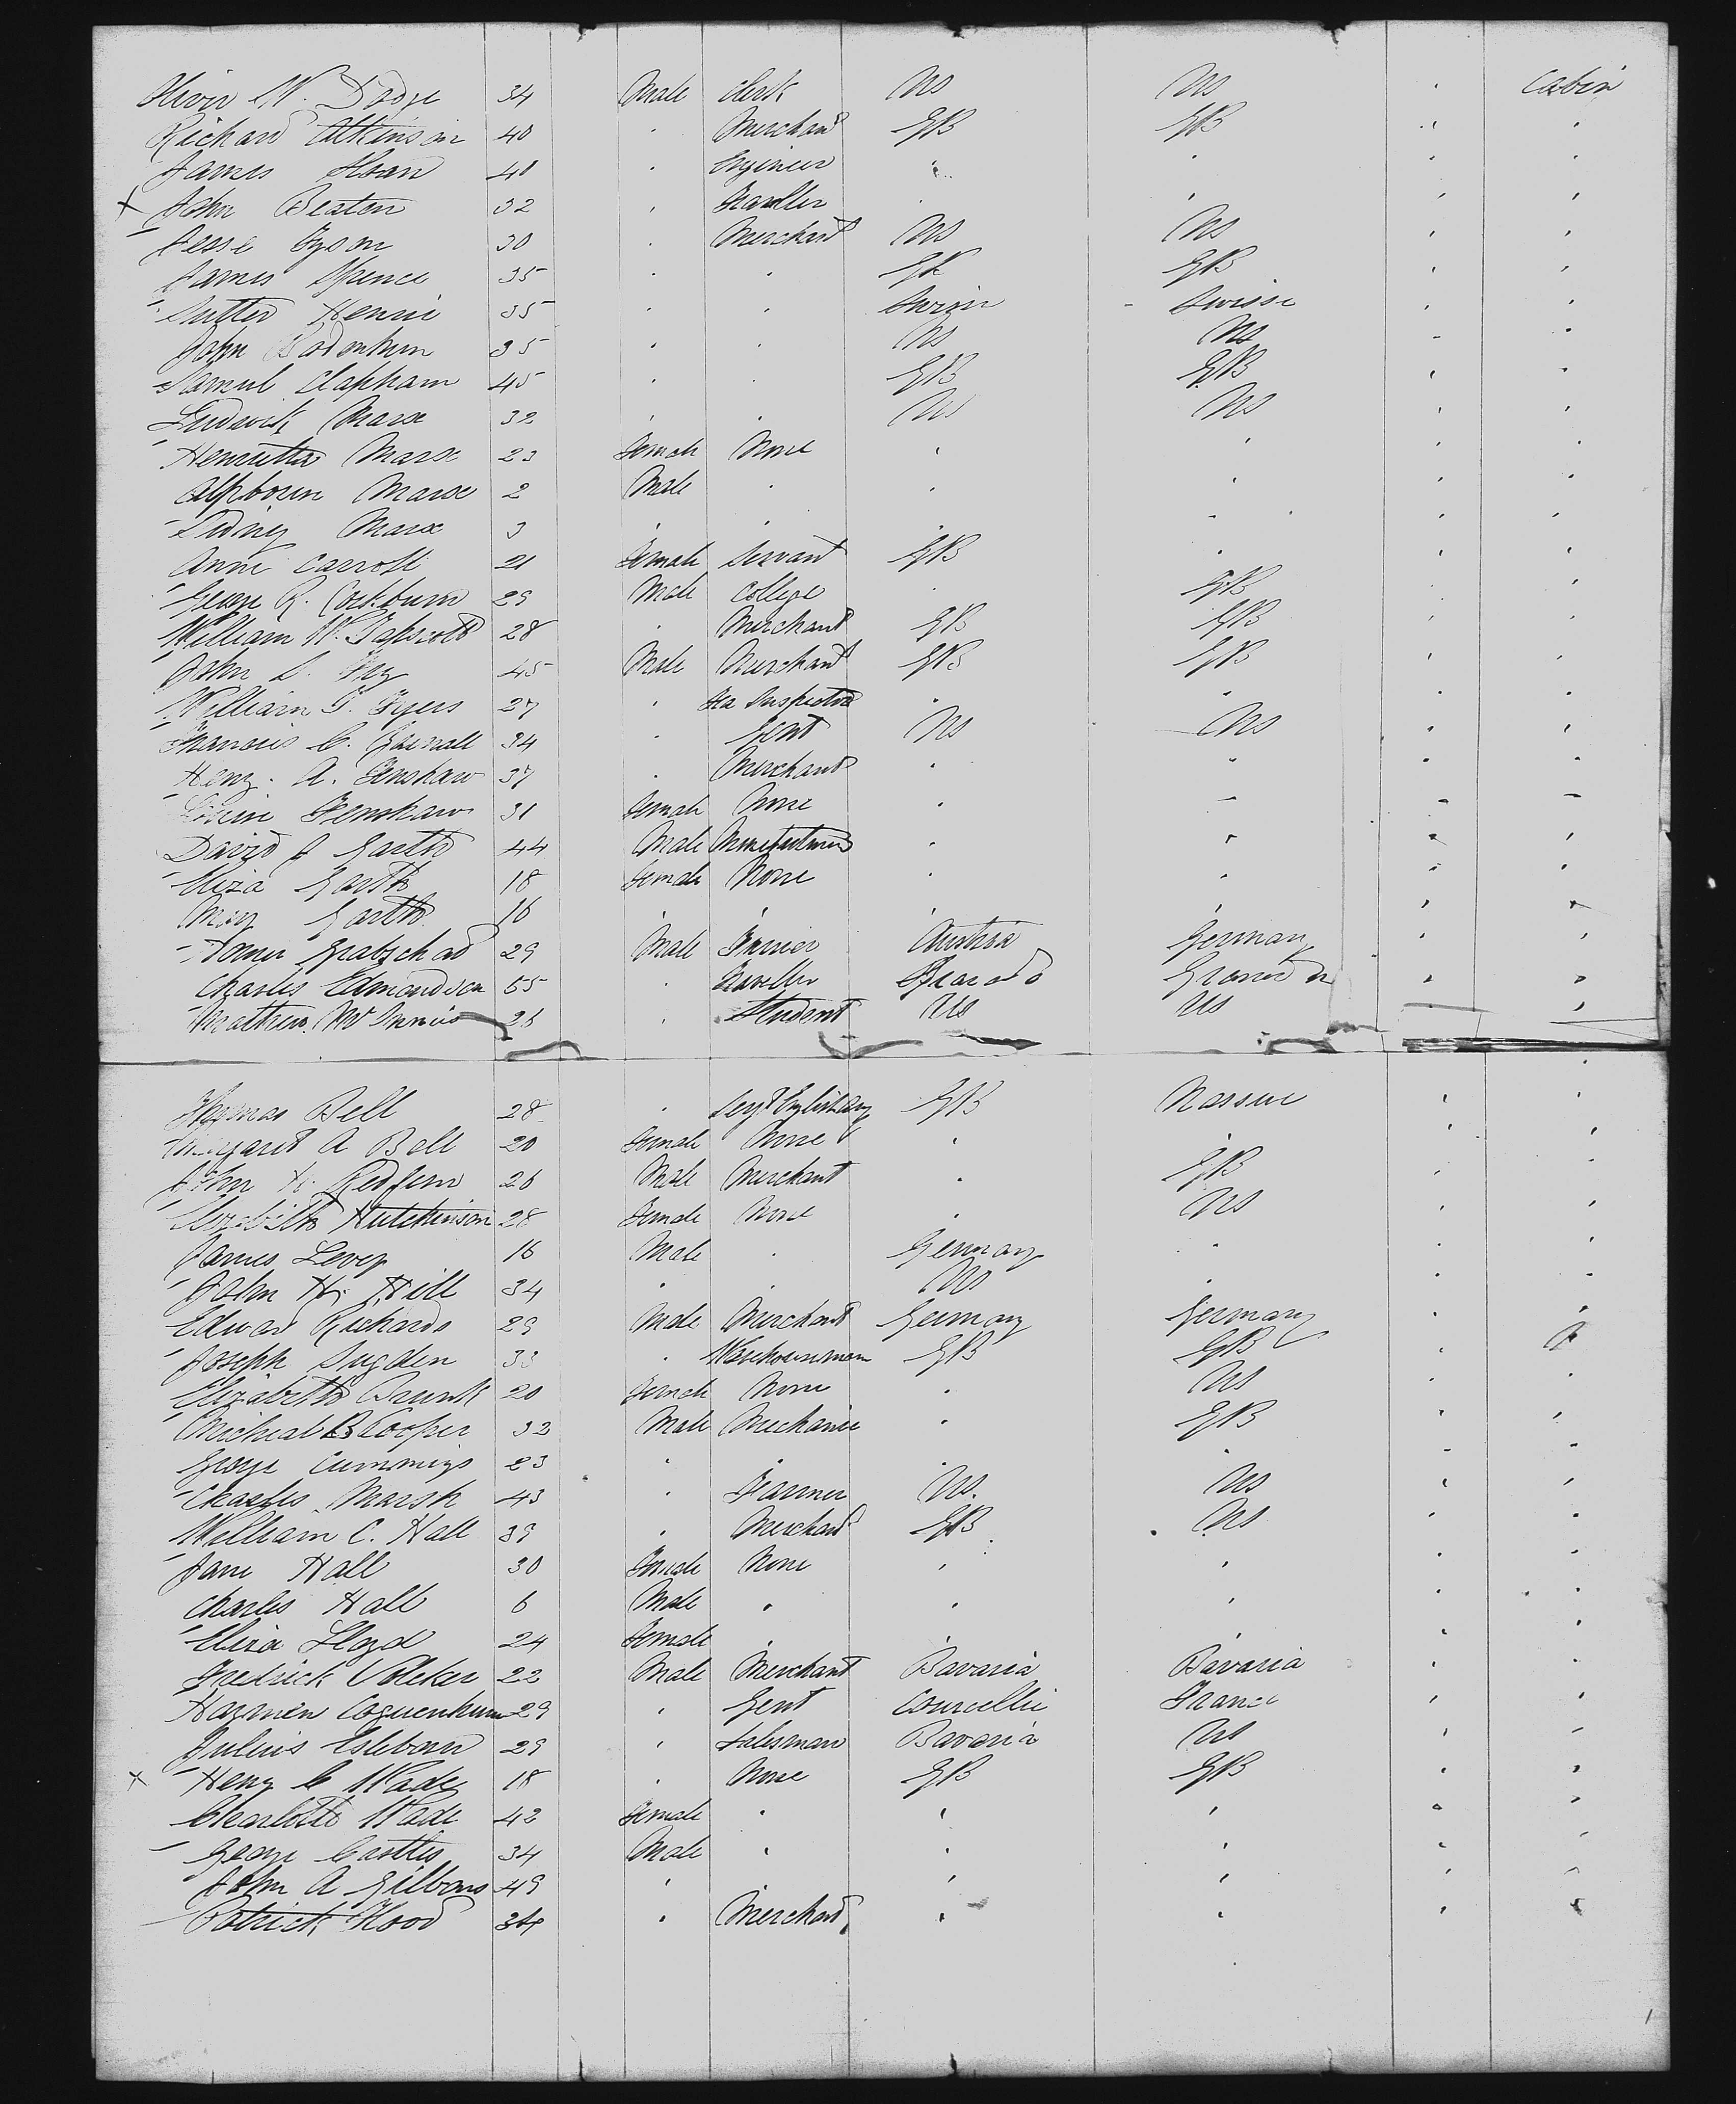 Oliver W. Dodge 34 Male Clerk US US " Cabin
Richard Atkinson 40 " Merchant GB GB " "
James Sloan 40 " Engineer " " " "
x John Beaton 32 " Traveller " " " "
Jesse Tyson 30 " Merchant US US " "
James Spence 35 " " GB GB " "
Sutter Henrie 35 " " Swisse Swisse " "
John 35 " " US US " "
Samul Clapham 45 " " GB GB " "
Ludwick Marx 32 " " US US " "
Henrietta Marx 23 Female None " " " "
Marx 2 Male " " " " "
Sidney Marx 3 " " " " " "
Anne Carroll 21 Female Servant GB " " "
George R. Cockburn 29 Male College " GB " "
William W. Tapscott 28 " Merchant GB GB " "
John S. 45 Male Merchant GB GB " "
William T. Fyers 27 " Inspector " " " "
Francis C. 34 " Gent US US " "
Heny. A. Fenshaw 37 " Merchant " " " "
Fenshaw 31 Female None " " " "
David J Garth 44 Male " " " "
Eliza Garth 18 Female None " " " "
Mary Garth 16 " " " " " "
29 Male Austria Germany " "
Charles Edmondson 55 " Traveller " "
Mathew 26 " Student US US " "
Thomas Bell 28 " GB Nassau " "
Margaret A Bell 20 Female None " " " "
John H. Redfern 26 Male Merchant " GB " "
Elizabeth Hutchinson 28 Female None " US " "
James Levey 16 Male " Germany " " "
John H. Hill 34 " " US " " "
Edward Richards 29 Male Merchant Germany Germany " "
Joseph Sugden 33 " Warehouseman GB GB "
Elizabeth Brunk 20 Female None " US " "
Micheal B Cooper 32 Male Mechanic " GB " "
George Cummings 23 " " " " " "
Charles Marsh 43 " Farmer US. US " "
William C. Hall 39 " Merchant GB US " "
Jane Hall 30 Female None " " " "
Charles Hall 6 Male " " " " "
Eliza Lloyd 24 Female " " " " "
Fredrick Volcker 22 Male Merchant Bavaria Bavaria " "
29 " Gent Courcelle France " "
Julius 29 " Salesman Bavaria US " "
x Heny C Wade 18 " None GB GB " "
Charlotte Wade 42 Female " " " " "
George Castles 34 Male " " " " "
John A Gibbons 49 " " " " " "
Patrick Hood 34 " Merchant " " " "